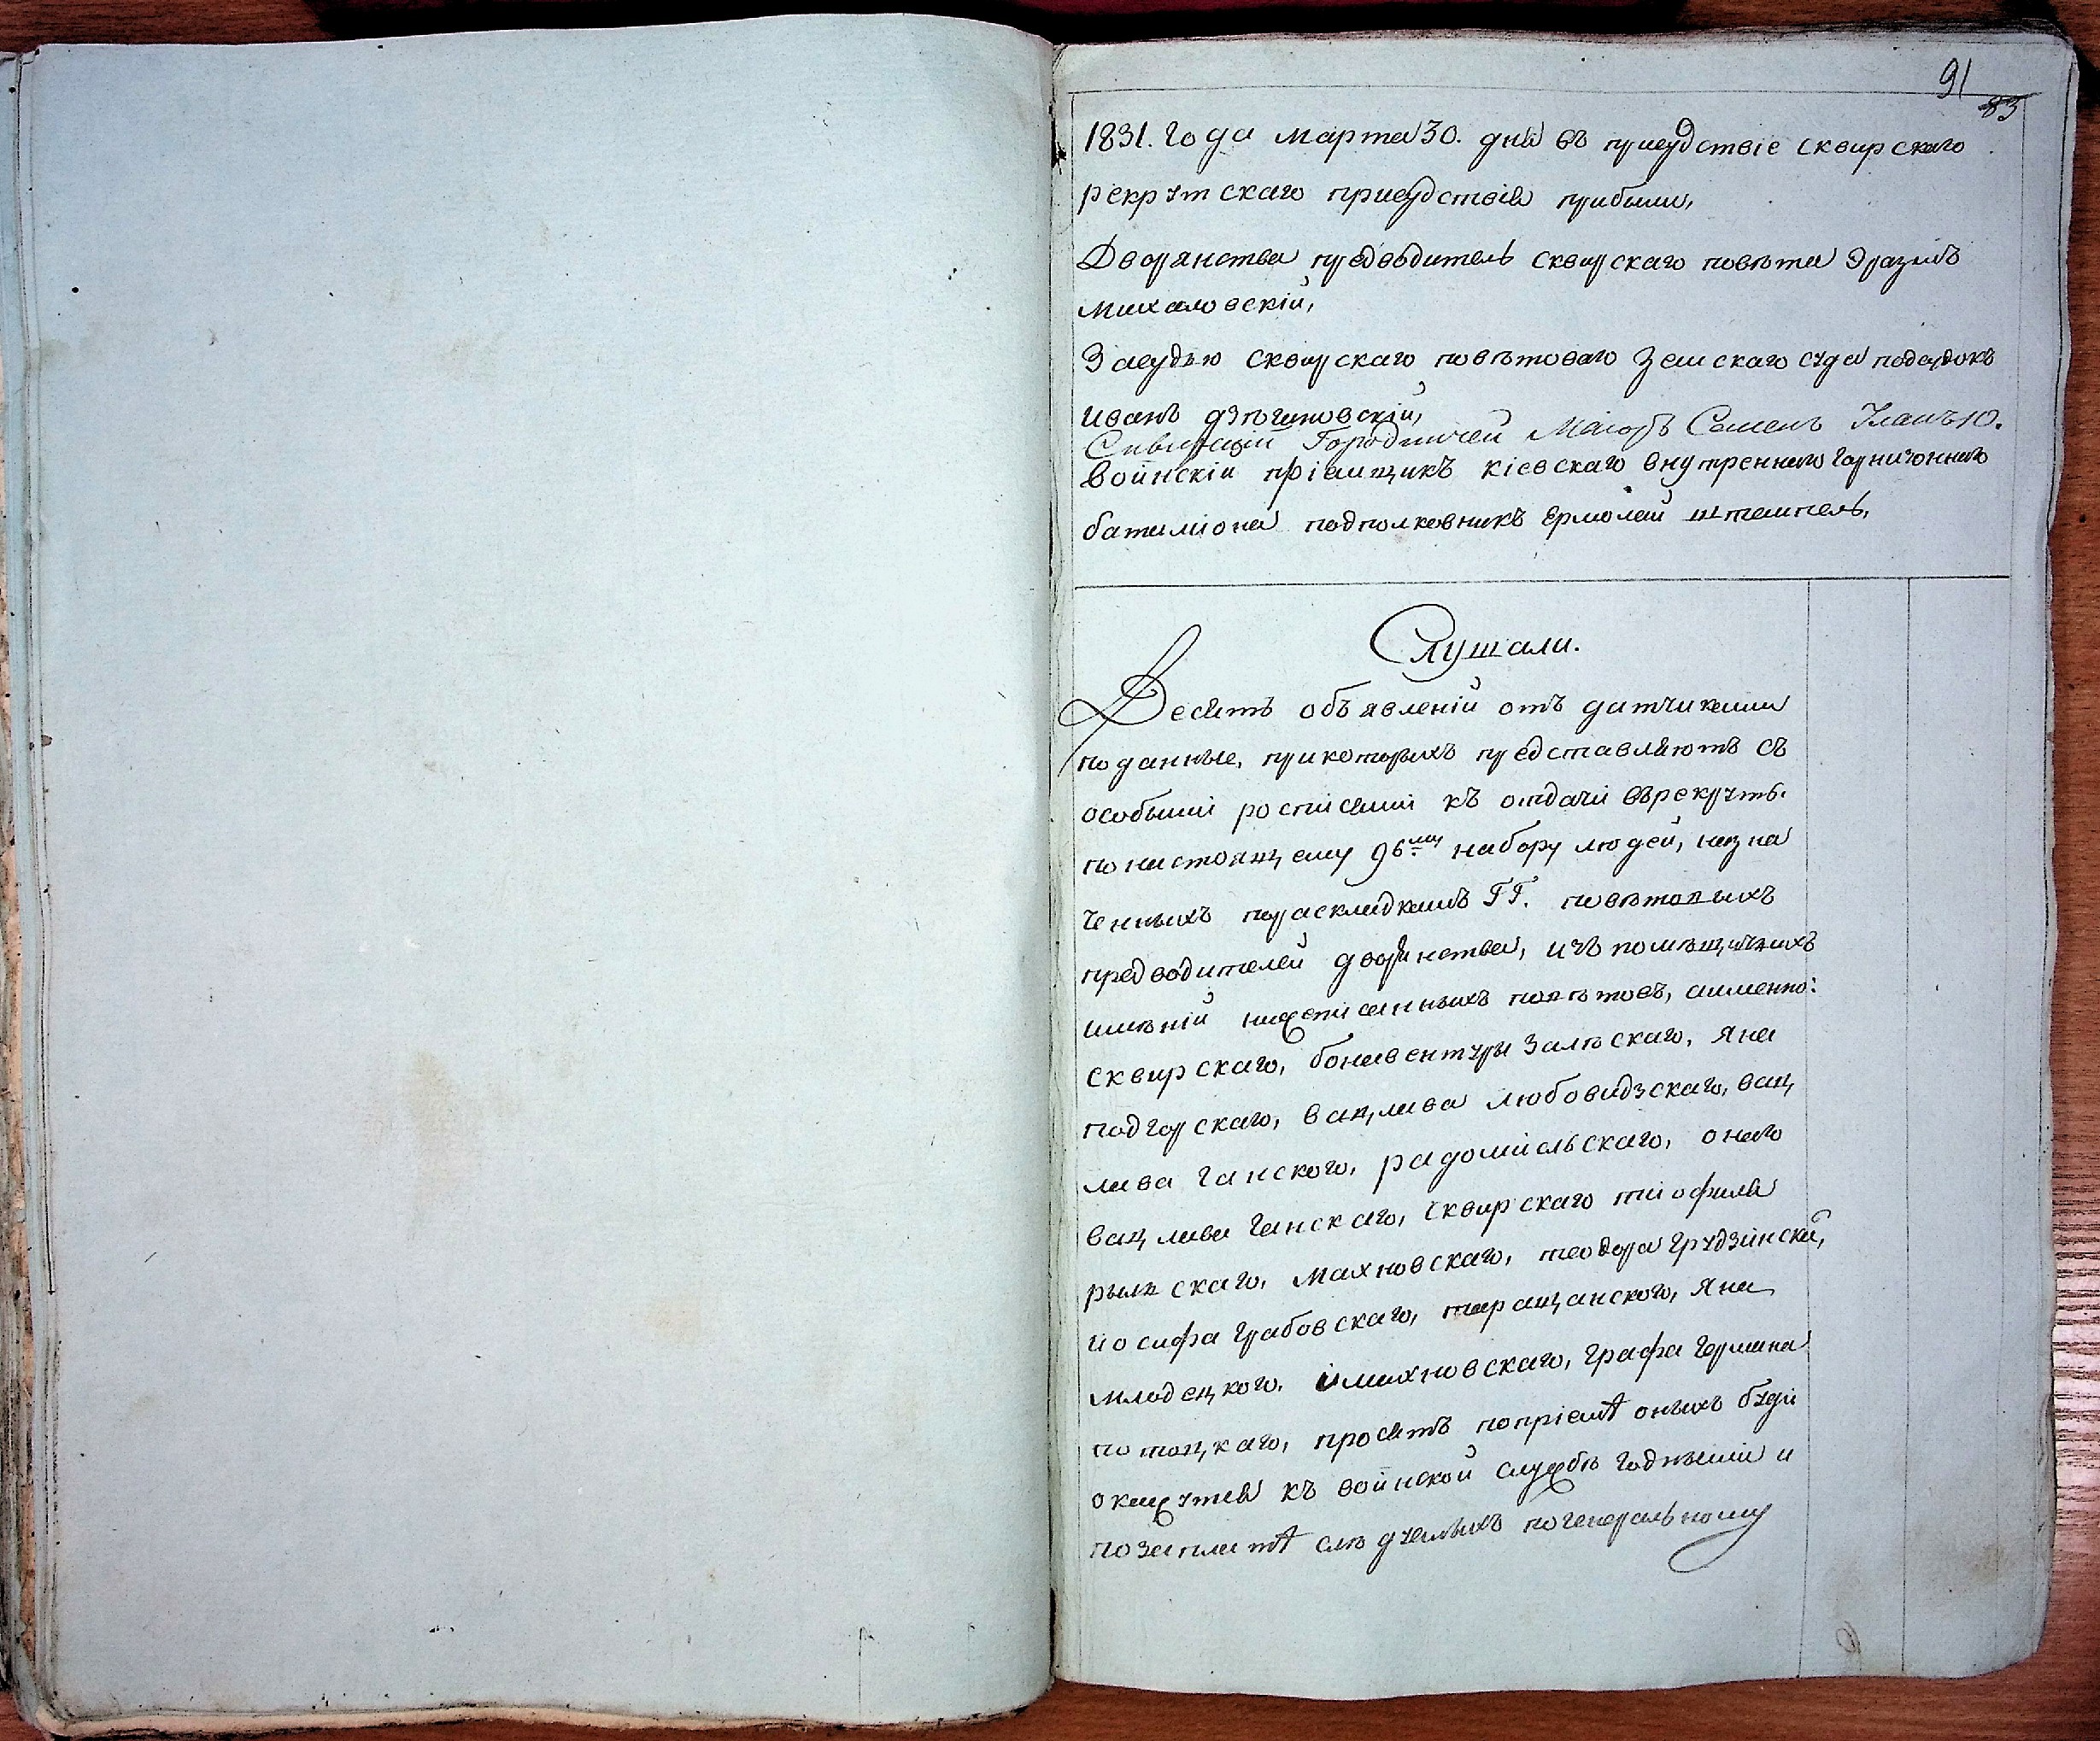 91
83
1831. Года марта 30. дня въ присудствіе сквирскаго
рекрутскаго присудствія прибыли,
Дворянства предводитель сквирскаго повѣта Эразмъ
михаловскій,
Засудью сквирскаго повѣтоваго земскаго суда подсудокъ
иванъ
Сквирскій Городничей Маіоръ Семенъ
воинскій пріемщикъ кіевскаго внутренняго гарнизоннаго
баталіона подполковникъ Ермолай штемпель,
Слушали.
Десять объявленій отъ датчиками
поданные, при которыхъ представляютъ съ
особыми росписями къ отдачи въ рекруты
по настоящему 96му набору людей, назна
ченныхъ по раскладкамъ ГГ. повѣтовыхъ
предводителей дворянства, изъ помѣщичьихъ
имѣній нижеписанныхъ повѣтовъ, аименно:
сквирскаго, бонавентуры залѣскаго, яна
подгорскаго, вацлава любовидзскаго, вац
лава ганского, радомисльскаго, онаго
вацлава ганскаго, сквирскаго тиофиля
рыльскаго, махновскаго, теодора грудзинскаго,
иосифа грабовскаго, таращанского, яна
млодецкого, имахновскаго, графа германа
потоцкаго, просятъ попріемѣ оныхъ буди
окажутся къ воинской службѣ годными и
позаплатѣ слѣдуемыхъ погенеральному